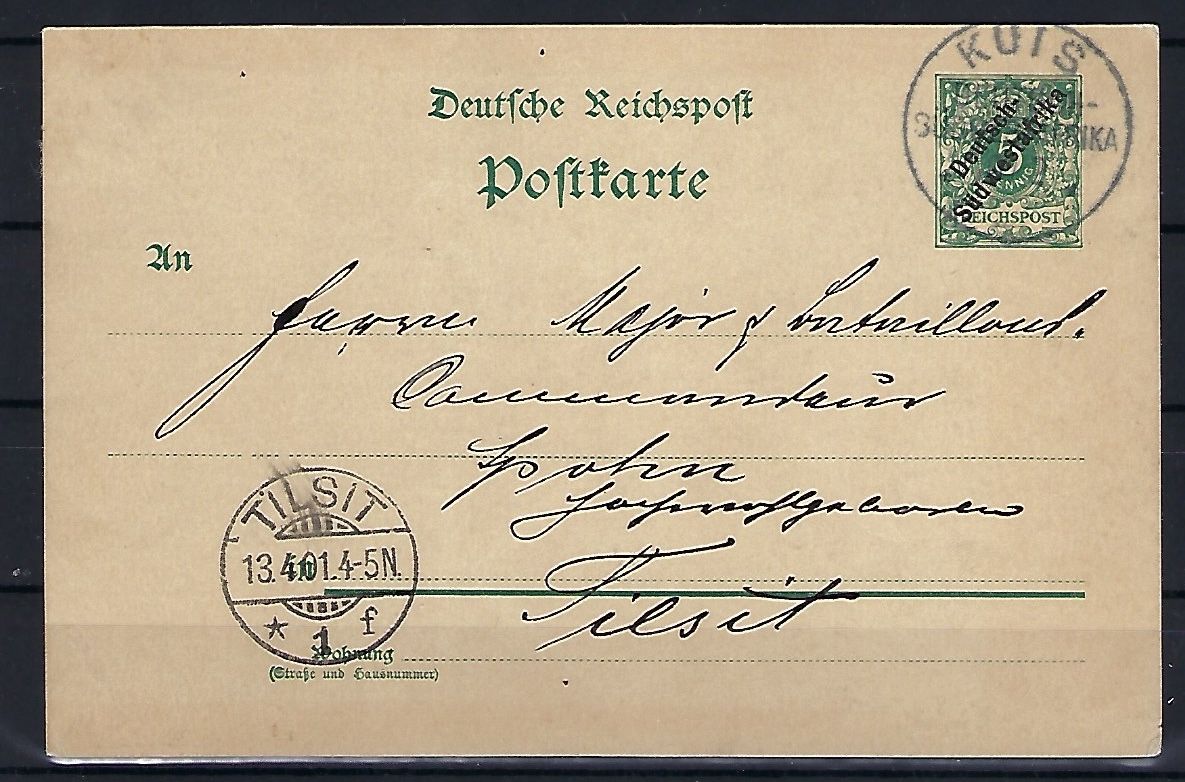 Deutsche Reichspost
Postkarte
KUIS
Deutsch-
Südwestafrika
5
REICHSPOST
An
Herrn Major & Bataillons-
Commandeur
Spohn
Hochwohlgeboren
Tilsit
TILSIT
13.4.01.4-5N.
* 1 f
Wohnung
(Straße und Hausnummer)